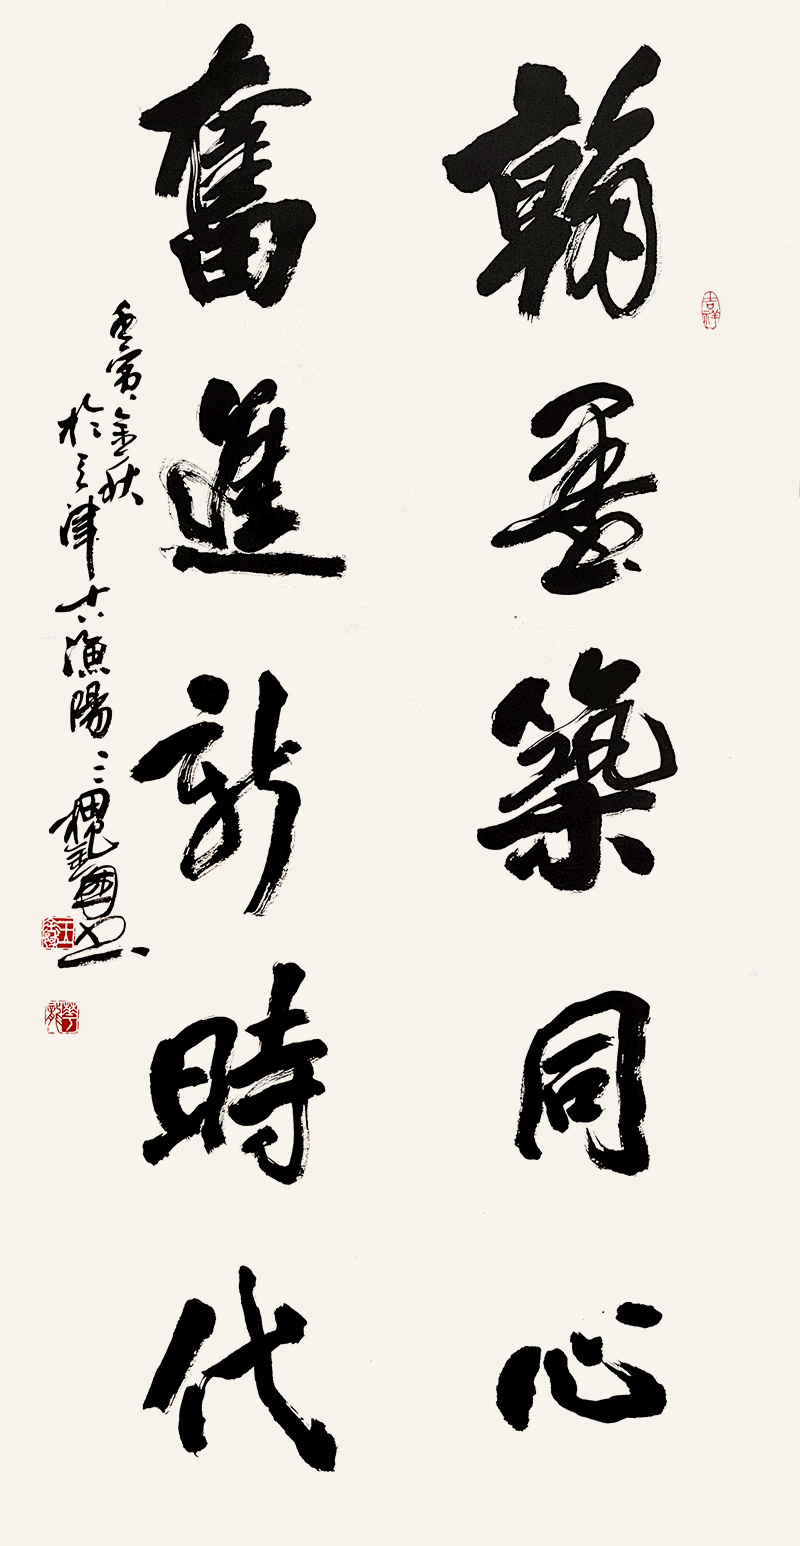 翰墨築同心
奮進新時代
壬寅金秋
於天津古漁陽
吉祥